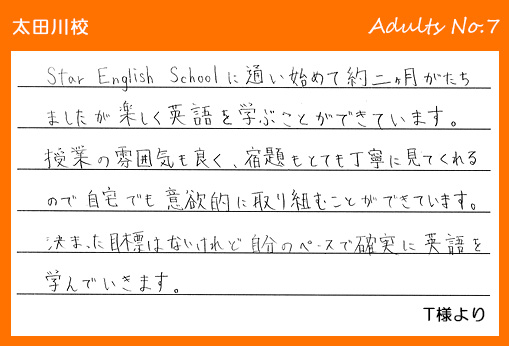 太田川校
Adults No.7
Star English Schoolに通い始めて約二ヶ月がたち
ましたが楽しく英語を学ぶことができています。
授業の雰囲気も良く、宿題もとても丁寧に見てくれる
ので自宅でも意欲的に取り組むことができています。
決まった目標はないけれど自分のペースで確実に英語を
学んでいきます。
T様より